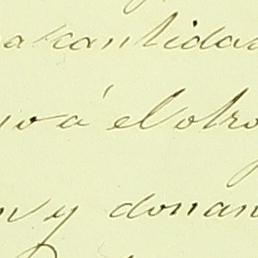 a cantidad
á el otro
y donan